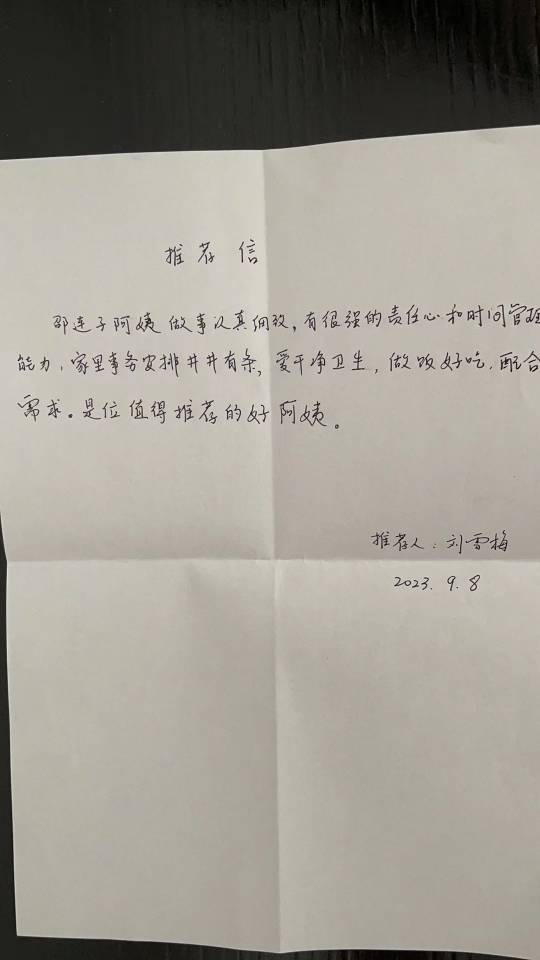 推荐信
邵连子阿姨做事认真细致，有很强的责任心和时间管理
能力，家里事务安排井井有条，爱干净卫生，做饭好吃，配合
需求。是位值得推荐的好阿姨。
推荐人：刘雪梅
2023.9.8